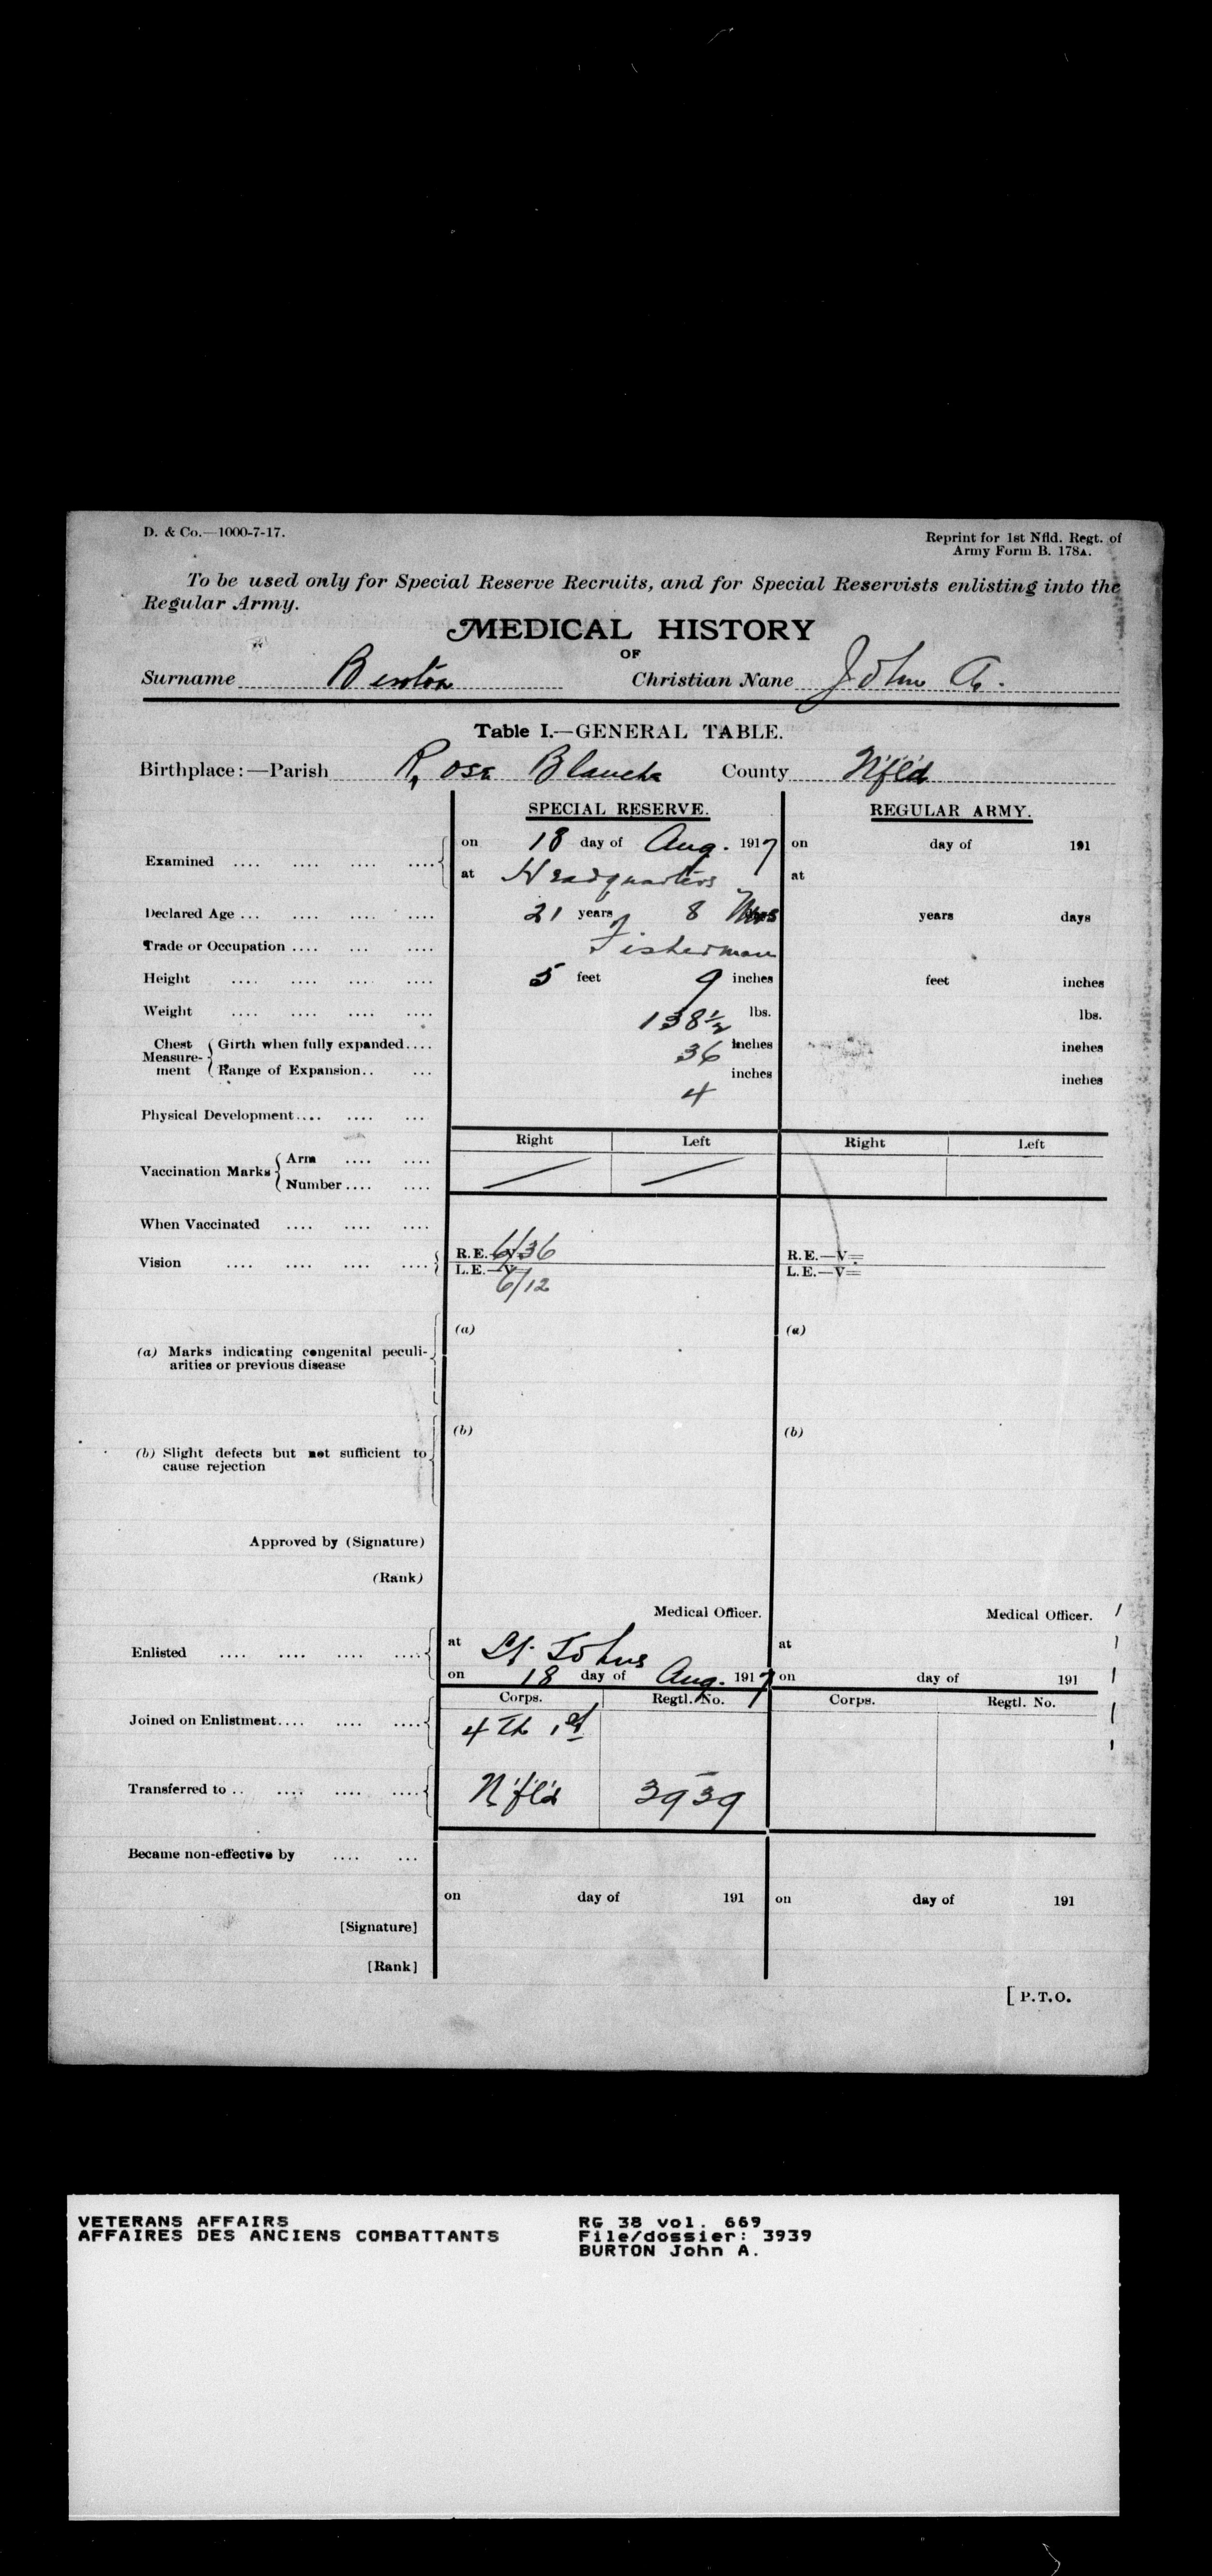 D. & Co.—1000-7-17.
Reprint for 1st Nfld. Regt. of
Army Form B. 178A.
To be used only for Special Reserve Recruits, and for Special Reservists enlisting into the
Regular Army.
MEDICAL HISTORY
OF
Surname Burton Christian Nane John A.
Table I.—GENERAL TABLE.
Birthplace:—Parish Rose Blanche County N'f'l'd
SPECIAL RESERVE. REGULAR ARMY.
Examined .... .... .... .... on 18 day of Aug. 1917 on day of 191
at Headquarters at
Declared Age ... .... .... .... 21 years 8 Mos years days
Trade or Occupation .... ... .... Fisherman
Height .... .... .... .... 5 feet 9 inches feet inches
Weight .... .... .... .... 138½ lbs. lbs.
Chest Measure-ment Girth when fully expanded.... 36 inches inches
Range of Expansion.. ... 4 inches inches
Physical Development.... .... ...
Right Left Right Left
Vaccination Marks Arm .... ....
Number.... ....
When Vaccinated .... .... ....
Vision .... .... .... .... R.E.—V= 6/36 R.E.—V=
L.E.—V= 6/12 L.E.—V=
(a) Marks indicating congenital peculi-
arities or previous disease
(a) (a)
(b) Slight defects but not sufficient to
cause rejection
(b) (b)
Approved by (Signature)
(Rank)
Medical Officer. Medical Officer.
Enlisted .... .... .... .... at St. Johns at
on 18 day of Aug. 1917 on day of 191
Corps. Regtl. No. Corps. Regtl. No.
Joined on Enlistment.... .... .... 4th 1st
Transferred to .. .... .... .... N'fl'd 3939
Became non-effective by .... ...
on day of 191 on day of 191
[Signature]
[Rank]
[ P.T.O.
VETERANS AFFAIRS
AFFAIRES DES ANCIENS COMBATTANTS
RG 38 vol. 669
File/dossier: 3939
BURTON John A.